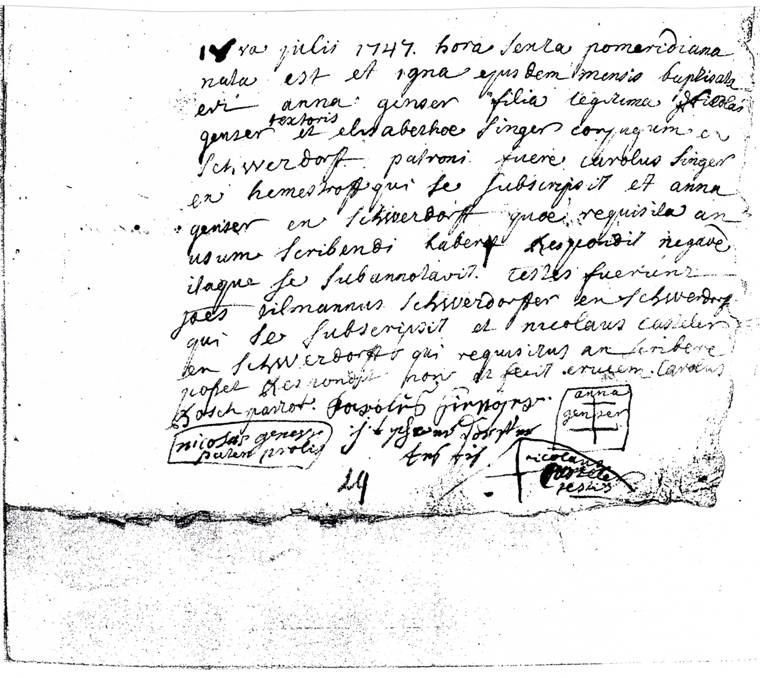 julii 1747. hora sexta pomeridiana
nata est et igna ejusdem mensis baptisata
anna genser filia legitima Nicolas
textoris
genser et elisabethae Singer conjugum en
Schwerdorff. patroni fuere carolus Singer
en hemestroff qui se subscripsit et anna
genser en Schwerdorff quae requisita an
usum scribendi haberet Respondit negavè
itaque se subannotavit. testes fuerunt
joès tilmannus Schwerdorffer en Schwerdorf
qui se subscripsit et nicolaus casteler
en Schwerdorff qui requisitus an scribere
posset Respondit non et fecit crucem. Carolus
Bosch parrot.
anna
genser
nicolas genser
pater prolis
nicolaus
testis
29